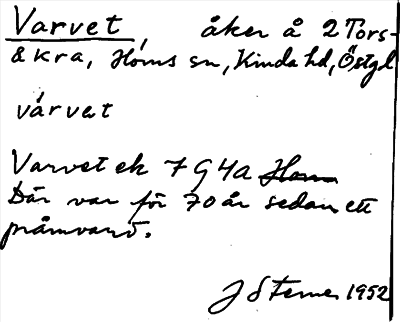 Varvet, åker å 2 Tors-
åkra, Horns sn, Kinda hd, Östgl
várvet
Varvet ek 7 G4a Horn
Där var för 70 år sedan ett
pråmvarv.
J Sterner 1952